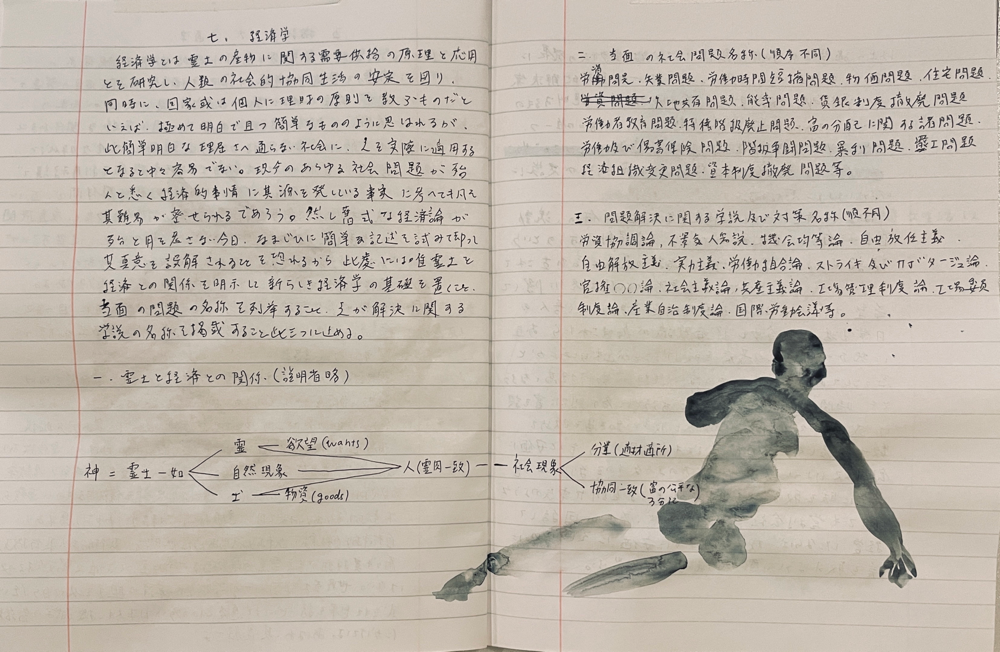 七、経済学
経済学とは霊土の産物に関する需要供給の原理と応用
とを研究し、人類の社会的協同生活の安定を図り、
同時に、国家或は個人に理財の原則を教ふるものだと
いえば、極めて明白で且つ簡単なもののように思はれるが、
此簡単明白な理屈さへ通らない社会に、之を実際に適用する
となると中々容易でない。現今のあらゆる社会問題が殆
んど悉く経済的事情に其源を発している事実に考へて
其難易が察せられるであろう。然し旧式な経済論が
役目を為さない今日、なまじひに簡単な記述を試みて却って
其真意を誤解されることを恐れるから此處には唯霊土と
経済との関係を明示して新らしき経済学の基礎を置くこと、
当面の問題の名称を列挙すること、之が解決に関する
学説の名称を掲載すること此三つに止める。
一、霊土と経済との関係、(説明省略)
神=霊土一如
霊 欲望(wants)
自然現象
土 物資(goods)
人(霊肉一致)
社会現象
分業(適材適所)
協同一致(富の公平な
る分配
二、当面の社会問題名称(順序不同)
労働問題、失業問題、労働時間短縮問題、物価問題、住宅問題、
土地共有問題、能率問題、賃銀制度撤廃問題
労働者教育問題、特権階級廃止問題、富の分配に関する諸問題、
労働及び傷害保険問題、階級争闘問題、暴利問題、罷工問題
経済組織変更問題、資本制度撤廃問題等。
三、問題解決に関する学説及び対策名称(順不同)
労資協調論、不景気人為説、機会均等論、自由放任主義、
自由解放主義、実力主義、労働組合論、ストライキ及びサボタージュ論、
官権〇〇論、社会主義論、共産主義論、工場管理制度論、工場委員
制度論、産業自治制度論、国際労働会議等。